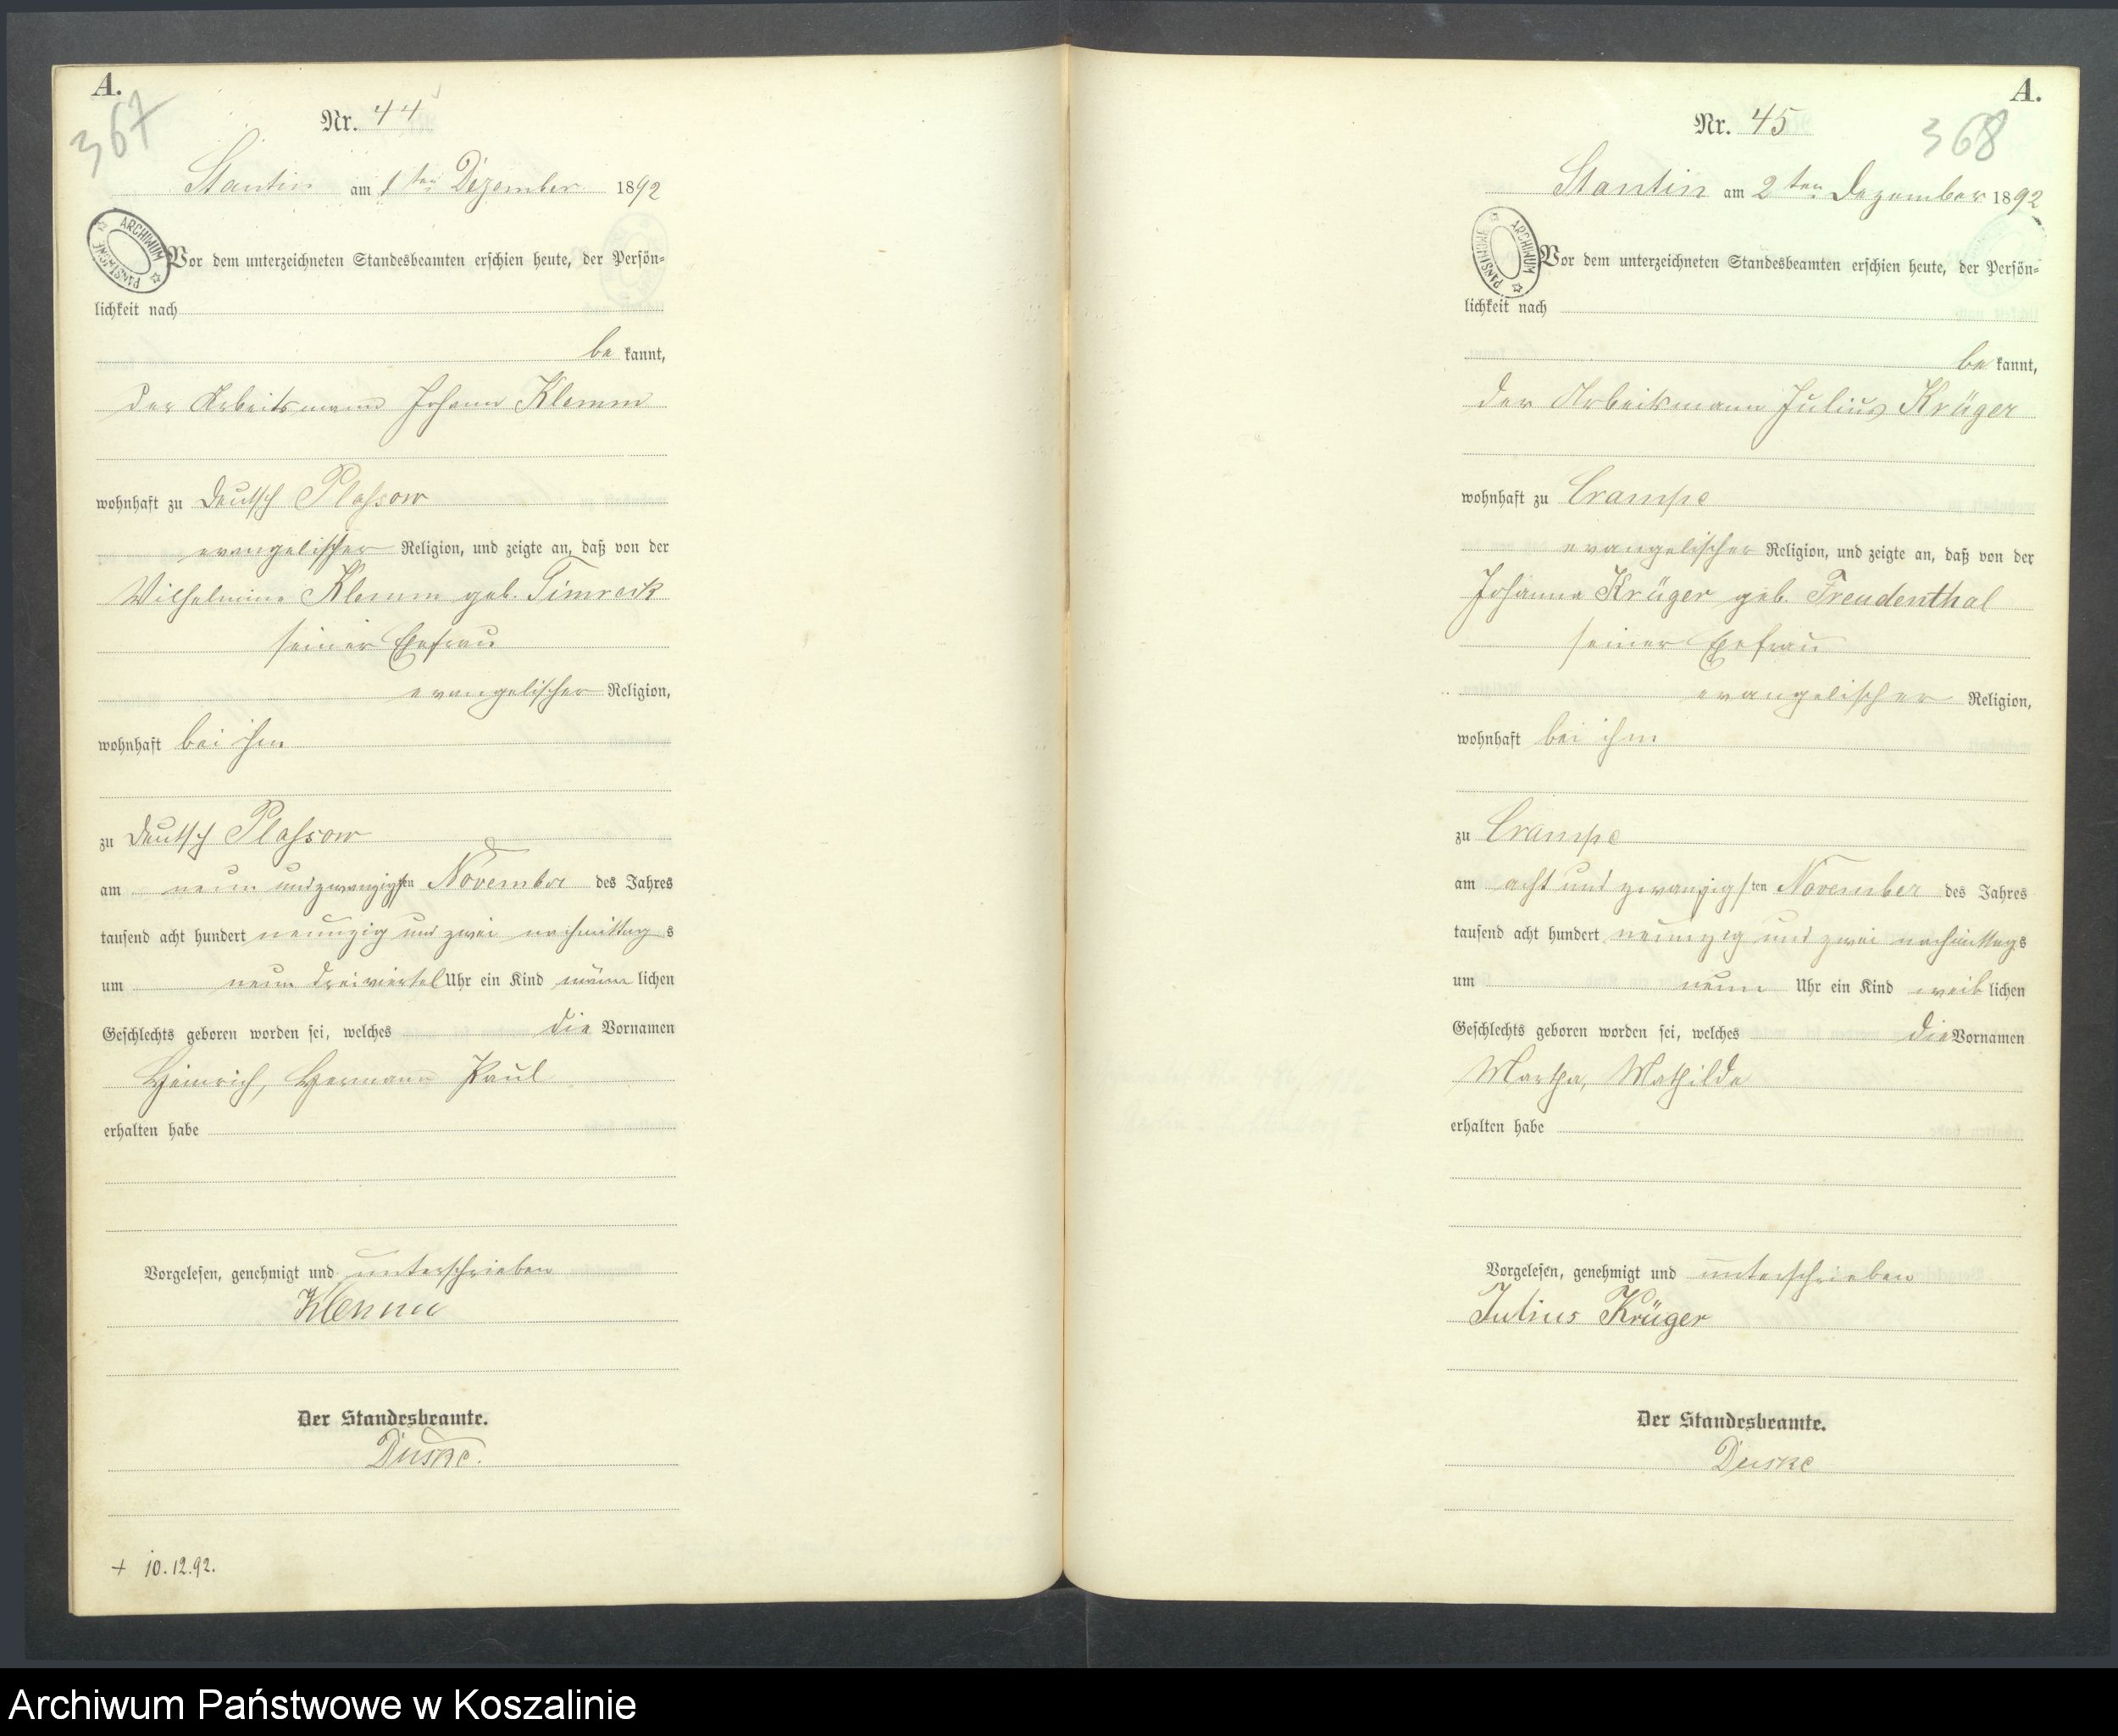 A.
367
Nr. 44
Stantin am 1ten Dezember 1892
ARCHIWUM PAŃSTWOWE
Vor dem unterzeichneten Standesbeamten erschien heute, der Persön=
lichkeit nach
be kannt,
der Arbeitsmann Johann Klemm
wohnhaft zu Deutsch Plassow
evangelischer Religion, und zeigte an, daß von der
Wilhelmine Klemm geb. Timreck
seiner Ehefrau
evangelischer Religion,
wohnhaft bei ihm
zu Deutsch Plassow
am neun und zwanzigsten November des Jahres
tausend acht hundert neunzig und zwei nachmittags
um neun dreiviertel Uhr ein Kind männ lichen
Geschlechts geboren worden sei, welches die Vornamen
Heinrich, Hermann Paul
erhalten habe
Vorgelesen, genehmigt und unterschrieben
Klemm
Der Standesbeamte.
Duske.
+ 10.12.92.
A.
368
Nr. 45
Stantin am 2ten Dezember 1892
ARCHIWUM PAŃSTWOWE
Vor dem unterzeichneten Standesbeamten erschien heute, der Persön=
lichkeit nach
be kannt,
der Arbeitsmann Julius Krüger
wohnhaft zu Crampe
evangelischer Religion, und zeigte an, daß von der
Johanna Krüger geb. Freudenthal
seiner Ehefrau
evangelischer Religion,
wohnhaft bei ihm
zu Crampe
am acht und zwanzigsten November des Jahres
tausend acht hundert neunzig und zwei nachmittags
um neun Uhr ein Kind weib lichen
Geschlechts geboren worden sei, welches die Vornamen
Martha, Mathilde
erhalten habe
Vorgelesen, genehmigt und unterschrieben
Julius Krüger
Der Standesbeamte.
Duske
Archiwum Państwowe w Koszalinie